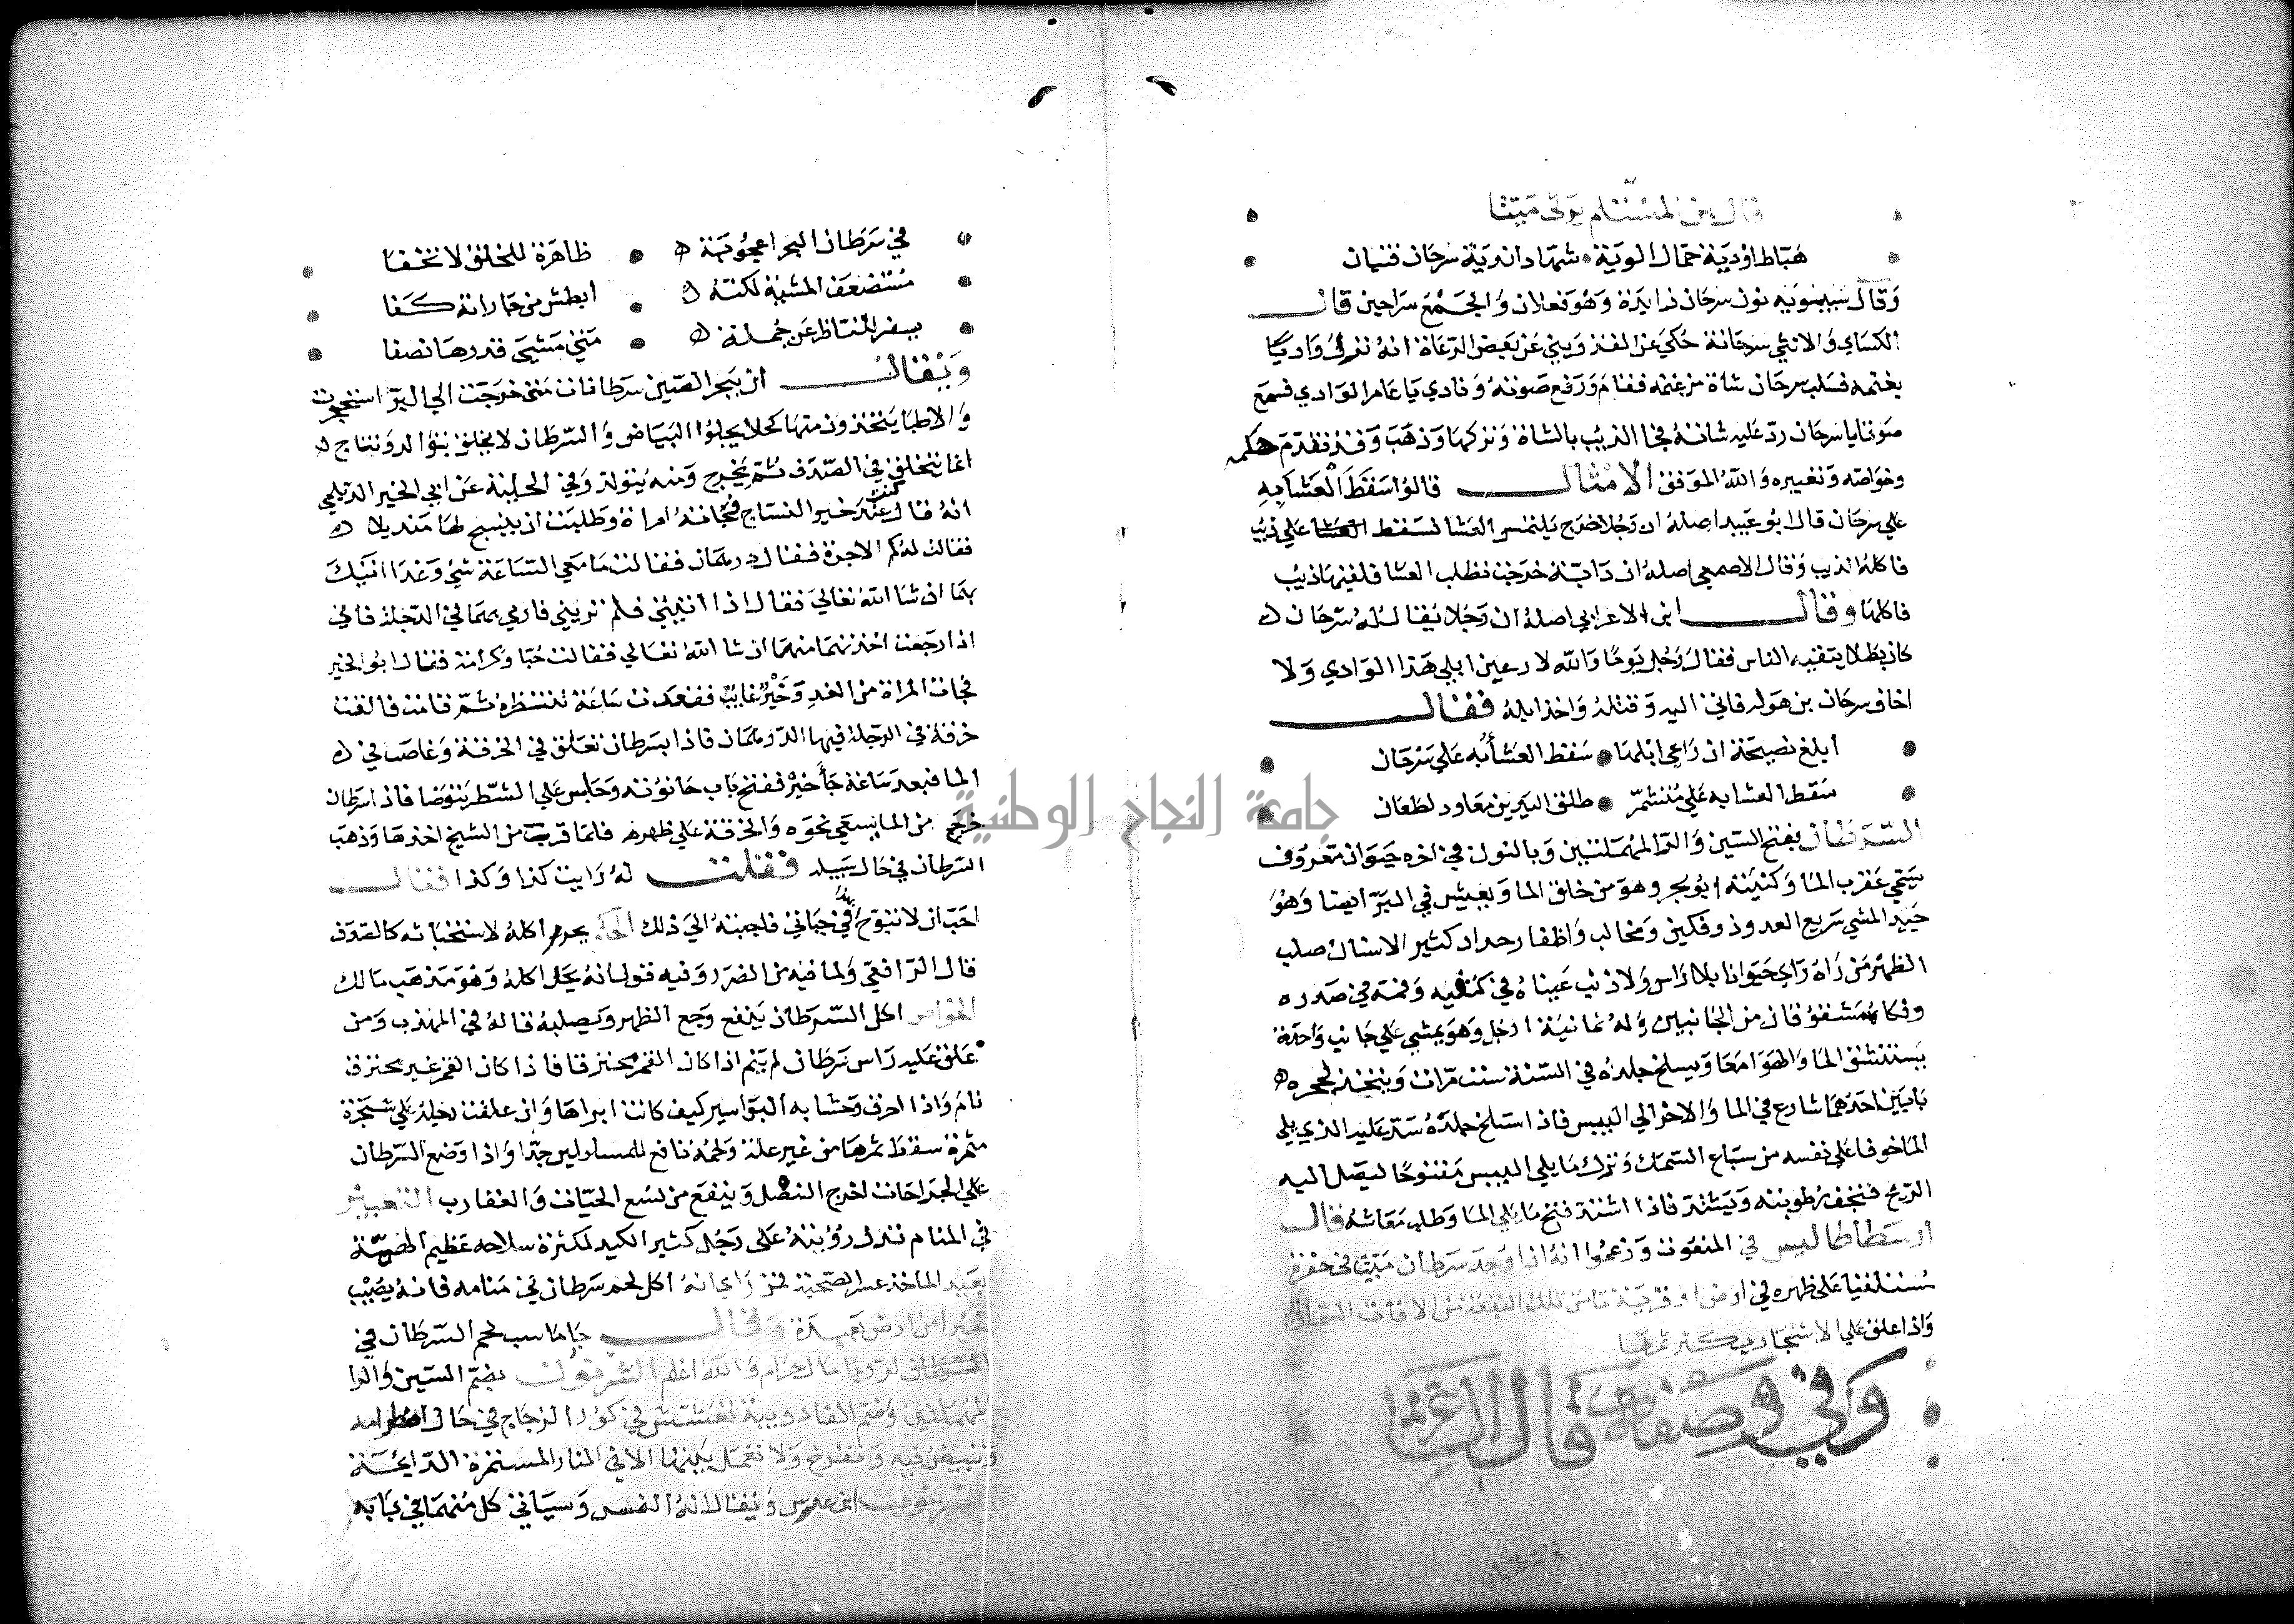 قال ابن المسلم يرثي ميتا
هباط اودية حمال الوية شهاد اندية سرحان فتيان
وقال سيبويه نون سرحان زايدة وهو فعلان والجمع سراحين قال
الكساي والانثي سرحانة حكي عن ويني عن بعض الرعاة انه نزل واديا
بغنمه فسلب سرحان شاة من غنمه فقام ورفع صوته ونادي يا عامر الوادي فسمع
صوتا يا سرحان رد عليه شاته فجا الذيب بالشاة وتركها وذهب وقد تقدم حكمه
وخواصه وتعبيره والله الموفق الامثال قالوا سقط العشا به
علي سرحان قال ابو عبيد اصله ان رجلا خرج يلتمس العشا فسقط علي ذيب
فاكله الذيب وقال الاصمعي اصله ان دابة خرجت تطلب العشا فلقيها ذيب
فاكلها وقال ابن الاعرابي اصله ان رجلا يقال له سرحان
كان بطلا يتقيه الناس فقال رجل يوما والله لا رعين ابلي هذا الوادي ولا
اخاف سرحان بن هوله فاتي اليه وقتله واخذ ابله فقال
ابلغ نصيحة ان راعي ابلها سقط العشا به علي سرحان
سقط العشا به علي متنمر طلق اليدين معاود لطعان
السرطان بفتح السين والرا المهملتين وبالنون في اخره حيوان معروف
يسمي عقرب الما وكنيته ابو بحر وهو من خلق الما ويعيش في البر ايضا وهو
جيد المشي سريع العدو ذو فكين ومخالب واظفار حداد كثير الاسنان صلب
الظهر من راه راي حيوانا بلا راس ولا ذنب عيناه في كتفيه وفمه في صدره
وفكاه مشقوقان من الجانبين وله ثمانية ارجل وهو يمشي علي جانب واحد
يستنشق الما والهوا معا ويسلخ جلده في السنة ست مرات ويتخذ لجحره
بابين احدهما شارع في الما والاخر الي اليبس فاذا استلخ جلده سد عليه الذي يلي
الما خوفا علي نفسه من سباع السمك وترك ما يلي اليبس مفتوحا ليصل اليه
الريح فتجف رطوبته ويشتد فاذا اشتد فتح ما يلي الما وطلب معاشه قال
ارسطاطاليس في النعوت وزعموا انه اذا وجد سرطان ميت في حفرة
مستلقيا علي ظهره في ارض او قرية تلك البقعة من الافات السماوية
واذا علق علي الاشجار يكثر ثمرها
وفي وصفه قال الشاعر
في سرطان
في سرطان البحر اعجوبة ظاهرة للخلق لا تخفا
مستضعف المشية لكنه ابطش من جاراته كفا
يسفر للناظر عن جملة متي مشي قدرها نصفا
ويقال ان ببحر الصين سرطانات متي خرجت الي البر استحجرت
والاطبا يتخذون منها كحلا يجلوا البياض والسرطان لا يخلق بتوالد ونتاج
انما يتخلق في الصدف ثم يخرج ومنه يتولد وفي الحلية عن ابي الخير الديلمي
انه قال كنت عند خير النساج فجاته امراة وطلبت ان ينسج لها منديلا
فقالت له كم الاجرة فقال درهمان فقالت ما معي الساعة شي وغدا اتيك
بهما ان شا الله تعالي فقال اذا اتيتيني فلم تريني فارمي بهما في الدجلة فاني
اذا رجعت اخذتهما منها ان شا الله تعالي فقالت حبا وكرامة فقال ابو الخير
فجات المراة من الغد وخير غايب فقعدت ساعة تنتظره ثم قامت فالقت
خرقة في الدجلة فيها الدرهمان فاذا بسرطان تعلق في الخرقة وغاص في
الما فبعد ساعة جا خير ففتح باب حانوته وجلس علي الشط يتوضا فاذا سرطان
خرج من الما يسعي نحوه والخرقة علي ظهره فلما قرب من الشيخ اخذها وذهب
السرطان في حال سبيله فقلت له رايت كذا وكذا فقال
احب ان لا تبوح به في حياتي فاجبته الي ذلك الحكم يحرم اكله لاستخباثه كالصدف
قال الرافعي ولما فيه من الضرر وفيه قول انه يحل اكله وهو مذهب مالك
الخواص اكل السرطان ينفع وجع الظهر ويصلبه قاله في المهذب ومن
علق عليه راس سرطان لم ينم اذا كان القمر محترقا فاذا كان القمر غير محترق
نام واذا احرق وحشا به البواسير كيف كانت ابراها وان علقت رجله علي شجرة
مثمرة سقط ثمرها من غير علة ولحمه نافع للمسلولين جدا واذا وضع السرطان
علي الجراحات اخرج النصل وينفع من لسع الحيات والعقارب التعبير
في المنام تدل رؤيته علي رجل كثير الكيد لكثرة سلاحه عظيم الهمة
بعيد الماخذ عسر الصحبة فمن راي انه اكل لحم سرطان في منامه فانه يصيب
خيرا من ارض بعيدة وقال جاماسب لحم السرطان في
مال حرام والله اعلم السرفوت بضم السين والرا
المهملتين وضم الفا دويبة تعشش في كور الزجاج في حال اضطرامه
وتبيض فيه وتفرخ ولا تعمل بيتها الا في النار المستمرة الدايمة
السرعوب ابن عرس ويقال انه النمس وسياتي كل منهما في بابه
جامعة النجاح الوطنية